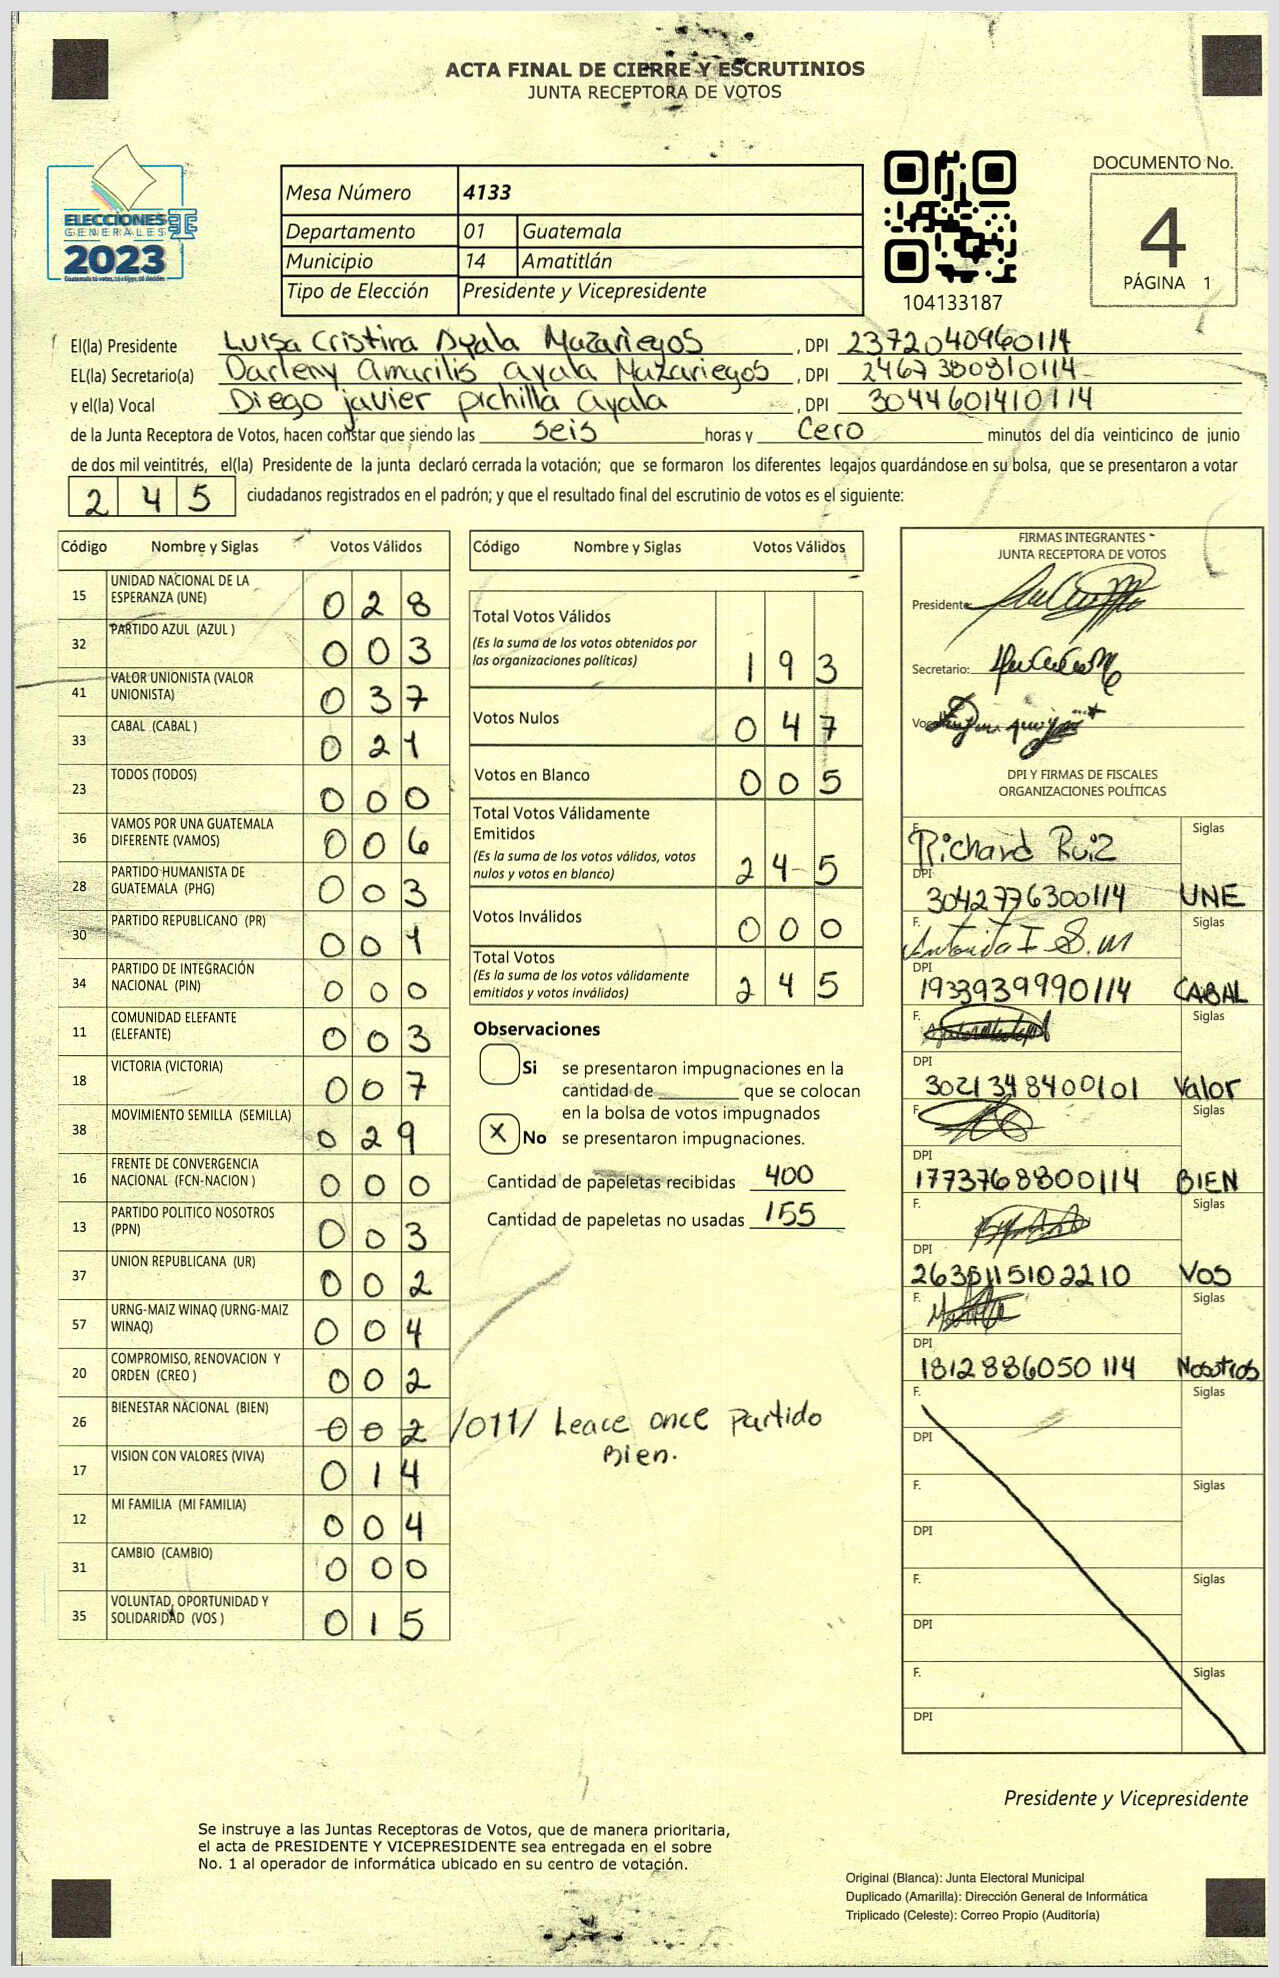 ACTA FINAL DE CIERRE Y ESCRUTINIOS
JUNTA RECEPTORA DE VOTOS
ELECCIONES
GENERALES
2023
Mesa Número 4133
Departamento 01 Guatemala
Municipio 14 Amatitlán
Tipo de Elección Presidente y Vicepresidente
104133187
DOCUMENTO No.
4
PÁGINA 1
El(la) Presidente Luisa Cristina Ayala Mazariegos , DPI 2372040960114
EL(la) Secretario(a) Darleny Amarilis ayala Mazariegos , DPI 2467380810114
y el(la) Vocal Diego javier pichilla ayala , DPI 3044601410114
de la Junta Receptora de Votos, hacen constar que siendo las seis horas y cero minutos del día veinticinco de junio
de dos mil veintitrés, el(la) Presidente de la junta declaró cerrada la votación; que se formaron los diferentes legajos guardándose en su bolsa, que se presentaron a votar
2 4 5 ciudadanos registrados en el padrón; y que el resultado final del escrutinio de votos es el siguiente:
Código Nombre y Siglas Votos Válidos
15 UNIDAD NACIONAL DE LA ESPERANZA (UNE) 0 2 8
32 PARTIDO AZUL (AZUL ) 0 0 3
41 VALOR UNIONISTA (VALOR UNIONISTA) 0 3 7
33 CABAL (CABAL ) 0 2 1
23 TODOS (TODOS) 0 0 0
36 VAMOS POR UNA GUATEMALA DIFERENTE (VAMOS) 0 0 6
28 PARTIDO HUMANISTA DE GUATEMALA (PHG) 0 0 3
30 PARTIDO REPUBLICANO (PR) 0 0 1
34 PARTIDO DE INTEGRACIÓN NACIONAL (PIN) 0 0 0
11 COMUNIDAD ELEFANTE (ELEFANTE) 0 0 3
18 VICTORIA (VICTORIA) 0 0 7
38 MOVIMIENTO SEMILLA (SEMILLA) 0 2 9
16 FRENTE DE CONVERGENCIA NACIONAL (FCN-NACION ) 0 0 0
13 PARTIDO POLITICO NOSOTROS (PPN) 0 0 3
37 UNION REPUBLICANA (UR) 0 0 2
57 URNG-MAIZ WINAQ (URNG-MAIZ WINAQ) 0 0 4
20 COMPROMISO, RENOVACION Y ORDEN (CREO ) 0 0 2
26 BIENESTAR NACIONAL (BIEN) 0 0 2 /011/ Leace once Partido
Bien.
17 VISION CON VALORES (VIVA) 0 1 4
12 MI FAMILIA (MI FAMILIA) 0 0 4
31 CAMBIO (CAMBIO) 0 0 0
35 VOLUNTAD, OPORTUNIDAD Y SOLIDARIDAD (VOS ) 0 1 5
Código Nombre y Siglas Votos Válidos
Total Votos Válidos
(Es la suma de los votos obtenidos por
las organizaciones políticas) 1 9 3
Votos Nulos 0 4 7
Votos en Blanco 0 0 5
Total Votos Válidamente
Emitidos
(Es la suma de los votos válidos, votos
nulos y votos en blanco) 2 4 5
Votos Inválidos 0 0 0
Total Votos
(Es la suma de los votos válidamente
emitidos y votos inválidos) 2 4 5
Observaciones
Si se presentaron impugnaciones en la
cantidad de ________ que se colocan
en la bolsa de votos impugnados
X No se presentaron impugnaciones.
Cantidad de papeletas recibidas 400
Cantidad de papeletas no usadas 155
FIRMAS INTEGRANTES
JUNTA RECEPTORA DE VOTOS
Presidente:
Secretario:
DPI Y FIRMAS DE FISCALES
ORGANIZACIONES POLÍTICAS
F. Richard Ruiz Siglas
DPI 3042776300114 UNE
F. Siglas
DPI 1933939990114 CABAL
F. Siglas
DPI 3021348400101 Valor
F. Siglas
DPI 1773768800114 BIEN
F. Siglas
DPI VOS
F. Siglas
DPI 1812886050114 Nosotros
F. Siglas
DPI
F. Siglas
DPI
F. Siglas
DPI
F. Siglas
DPI
Presidente y Vicepresidente
Se instruye a las Juntas Receptoras de Votos, que de manera prioritaria,
el acta de PRESIDENTE Y VICEPRESIDENTE sea entregada en el sobre
No. 1 al operador de informática ubicado en su centro de votación.
Original (Blanca): Junta Electoral Municipal
Duplicado (Amarilla): Dirección General de Informática
Triplicado (Celeste): Correo Propio (Auditoría)